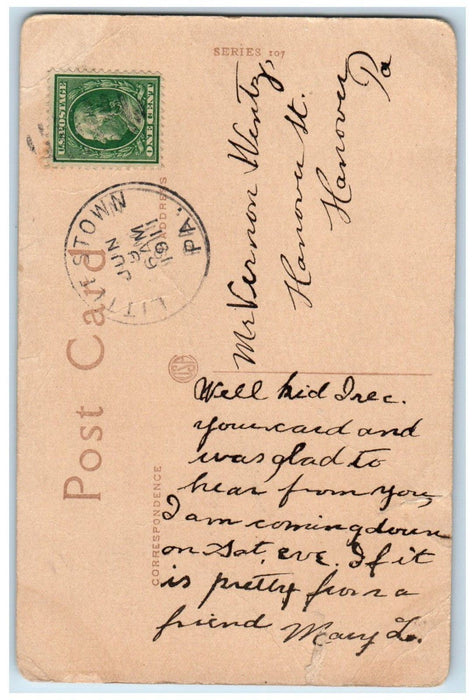 SERIES 107
U.S. POSTAGE
ONE CENT
LITTLESTOWN
PA.
JUN
6
AM
1911
Post Card
ADDRESS
CORRESPONDENCE
Mr Vernon Wentz,
Hanover St.
Hanover
Pa
Well kid I rec.
your card and
was glad to
hear from you
I am coming down
on Sat, eve. If it
is pretty from a
friend Mary L.